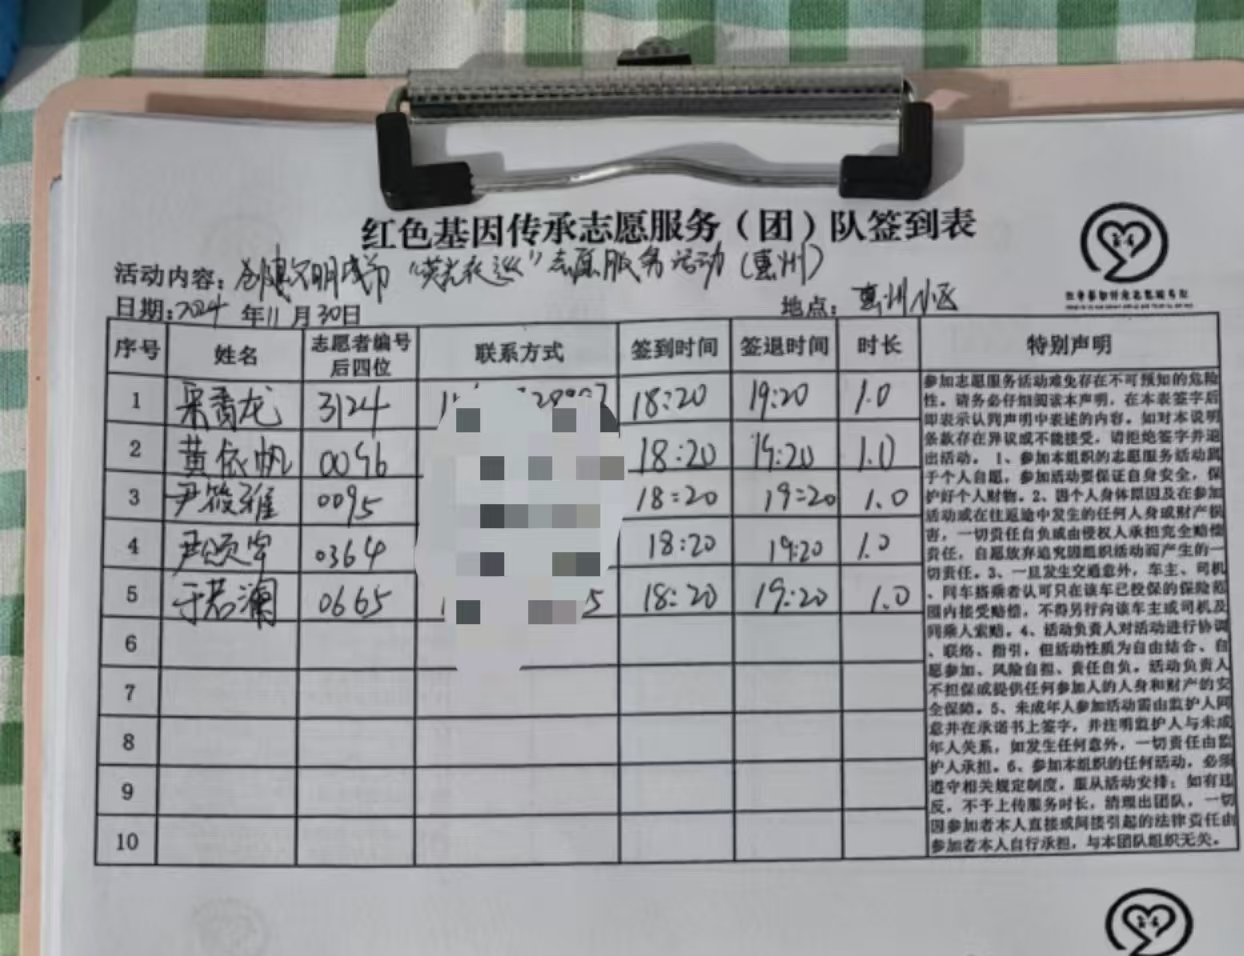 红色基因传承志愿服务（团）队签到表
活动内容：创建文明城市“荧光夜巡”志愿服务活动（惠州）
日期：2024年11月30日 地点：惠州小区
序号 姓名 志愿者编号后四位 联系方式 签到时间 签退时间 时长 特别声明
1 青龙 3124 18:20 19:20 1.0
2 黄依帆 0096 18:20 19:20 1.0
3 尹筱雅 0095 18:20 19:20 1.0
4 0364 18:20 19:20 1.0
5 于若澜 0665 5 18:20 19:20 1.0
6
7
8
9
10
参加志愿服务活动难免存在不可预知的危险
性。请务必仔细阅读本声明，在本表签字后
即表示认同声明中表述的内容。如对本说明
条款存在异议或不能接受，请拒绝签字并退
出活动。1、参加本组织的志愿服务活动属
于个人自愿，参加活动要保证自身安全，保
护好个人财物。2、因个人身体原因及在参加
活动或在往返途中发生的任何人身或财产损
害，一切责任自负或由侵权人承担完全赔偿
责任，自愿放弃追究因组织活动而产生的一
切责任。3、一旦发生交通意外，车主、司机
、同车搭乘者认可只在该车已投保的保险范
围内接受赔偿，不得另行向该车主或司机及
同乘人索赔。4、活动负责人对活动进行协调
、联络、指引，但活动性质为自由结合、自
愿参加、风险自担、责任自负。活动负责人
不担保或提供任何参加人的人身和财产的安
全保障。5、未成年人参加活动需由监护人同
意并在承诺书上签字，并注明监护人与未成
年人关系，如发生任何意外，一切责任由监
护人承担。6、参加本组织的任何活动，必须
遵守相关规定制度，服从活动安排；如有违
反，不予上传服务时长，清理出团队，一切
因参加者本人直接或间接引起的法律责任由
参加者本人自行承担，与本团队组织无关。